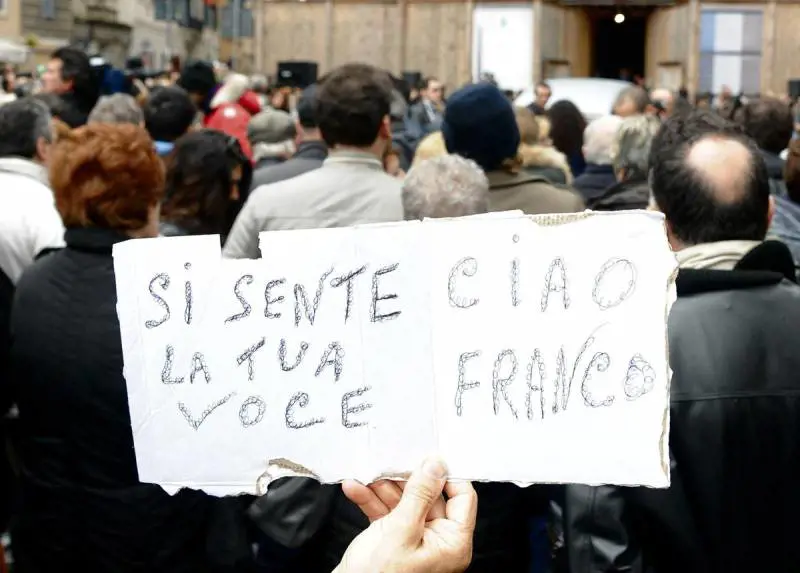 Si SENTE
LA TUA
VOCE
CiAO
FRANCO